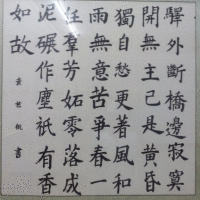 驛外斷橋邊寂寞
開無主已是黃昏
獨自愁更著風和
雨無意苦爭春一
任羣芳妬零落成
泥碾作塵祇有香
如故
書